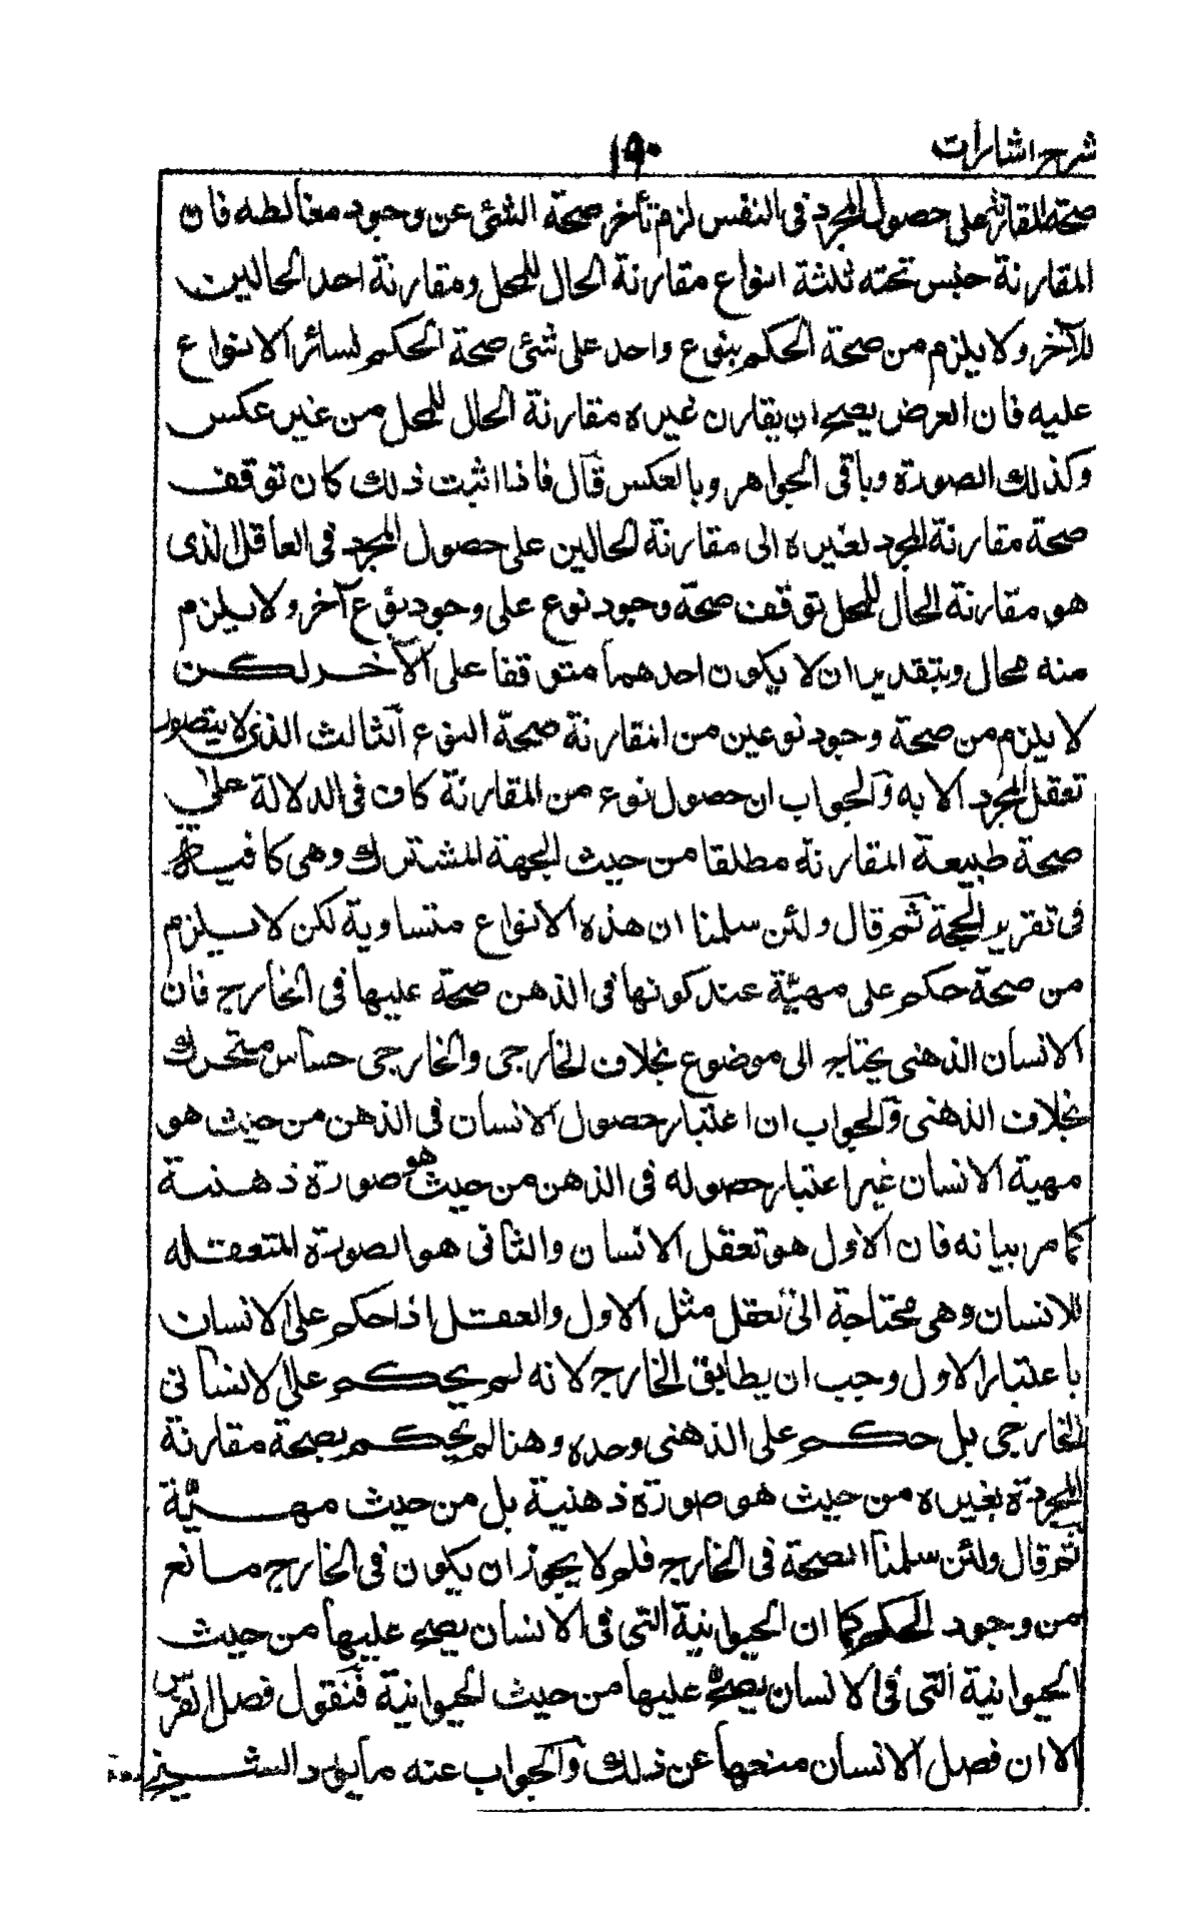 شرح اشارات
١٩٠
صحة المقارنة على حصول المجرد فى النفس لزم تأخر صحة الشئ عن وجود مغالطه فان
المقارنة جنس تحته ثلثة انواع مقارنة الحال للمحل ومقارنة احد الحالين
للآخر ولا يلزم من صحة الحكم بنوع واحد على شئ صحة الحكم لسائر الانواع
عليه فان العرض يصح ان يقارن غيره مقارنة الحال للمحل من غير عكس
وكذلك الصورة وباقى الجواهر وبالعكس قال فاذا اثبت ذلك كان توقف
صحة مقارنة المجرد لغيره الى مقارنة الحالين على حصول المجرد فى العاقل الذى
هو مقارنة الحال للمحل توقف صحة وجود نوع على وجود نوع آخر ولا يلزم
منه محال وبتقدير ان لا يكون احدهما متوقفا على الآخر لكن
لا يلزم من صحة وجود نوعين من المقارنة صحة النوع الثالث الذى لا يتصور
تعقل المجرد الا به والجواب ان حصول نوع من المقارنة كاف فى الدلالة على
صحة طبيعة المقارنة مطلقا من حيث الجهة المشتركة وهى كافية
فى تقرير الحجة ثم قال ولئن سلمنا ان هذه الانواع متساوية لكن لا يلزم
من صحة حكم على مهيّة عند كونها فى الذهن صحة عليها فى الخارج فان
الانسان الذهنى يحتاج الى موضوع بخلاف الخارجى والخارجى حساس متحرك
بخلاف الذهنى والجواب ان اعتبار حصول الانسان فى الذهن من حيث هو
مهية الانسان غير اعتبار حصوله فى الذهن من حيث هو صورة ذهنية
كما مر بيانه فان الاول هو تعقل الانسان والثانى هو الصورة المتعقله
للانسان وهى محتاجة الى تعقل مثل الاول والعقل اذا حكم على الانسان
باعتبار الاول وجب ان يطابق الخارج لانه لم يحكم على الانسانى
الخارجى بل حكم على الذهنى وحده وهنا لم يحكم بصحة مقارنة
المجردة بغيره من حيث هو صورة ذهنية بل من حيث مهيّة
ثم قال ولئن سلمنا الصحة فى الخارج فلم لا يجوز ان يكون فى الخارج مانع
من وجود الحكم كما ان الحيوانية التى فى الانسان يصح عليها من حيث
الحيوانية التى فى الانسان يصح عليها من حيث الحيوانية فنقول فصل الفرس
الا ان فصل الانسان منعها عن ذلك والجواب عنه ما يورد الشيخ